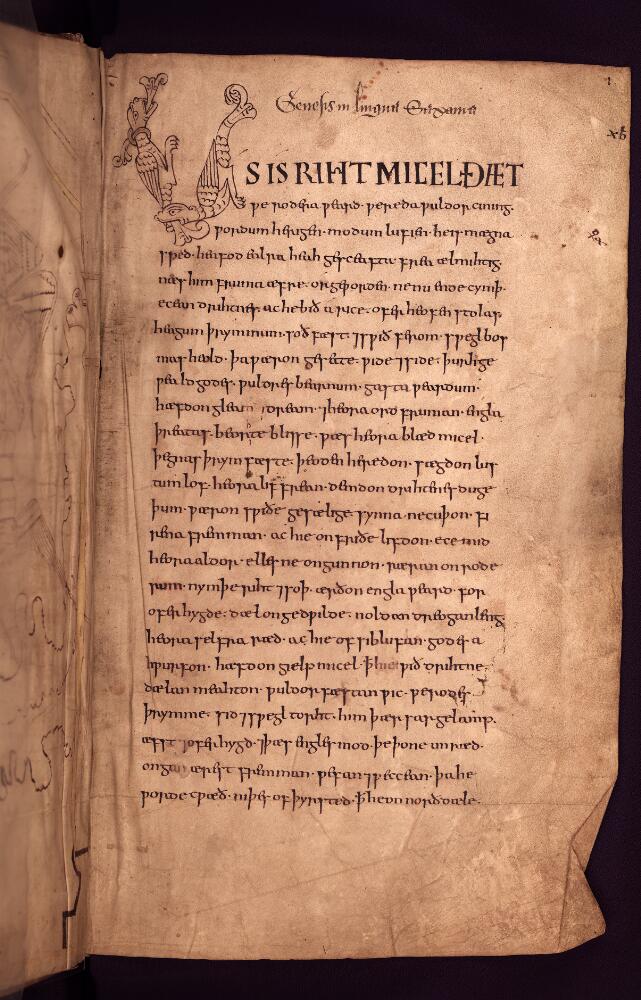 Genesis in lingua Saxonica
US IS RIHT MICEL ÐÆT
ƿe rodera ƿeard · ƿereda ƿuldor cining ·
ƿordum herigen · modum lufien · he is mægna
sped · heafod ealra heah gesceafta · frea ælmihtig ·
næs him fruma æfre · or geƿorden · ne nu ende cymþ ·
ecean drihtnes · ac he bið a rice · ofer heofen stolas ·
heagum þrymmum · soð fæst · ⁊ sƿið ferom · sƿegl bos
mas heold · þa ƿæron gesette · ƿide ⁊ side · þurh geƿe
ald godes · ƿuldres bearnum · gasta ƿeardum ·
hæfdon gleam ⁊ dream · ⁊ heora ord fruman · engla
þreatas · beorhte blisse · ƿæs heora blæd micel ·
þegnas þrymfæste · þeoden heredon · sægdon lus
tum lof · heora lif frean · demdon drihtenes duge
þum · ƿæron sƿiðe gesælige · synna ne cuþon · fi
rena fremman · ac hie on friðe lifdon · ece mid
heora aldor · elles ne ongunnon · ræran on rode
rum · nymþe riht ⁊ soþ · ærðon engla ƿeard · for
ofer hygde · dæl on gedƿilde · noldan dreogan leng ·
heora selfra ræd · ac hie of siblufan · godes a
hƿurfon · hæfdon gielp micel · þ hie ƿið drihtne ·
dælan meahton · ƿuldor fæstan ƿic · ƿerodes
þrymme · sid ⁊ sƿegl torht · him þær sar gelamp ·
æfst ⁊ ofer hygd · ⁊ þæs engles mod · þe þone unræd ·
ongan ærest fremman · ƿefan ⁊ ƿeccean · þa he
ƿorde cƿæð · niþes ofþyrsted · þ he on norð dæle ·